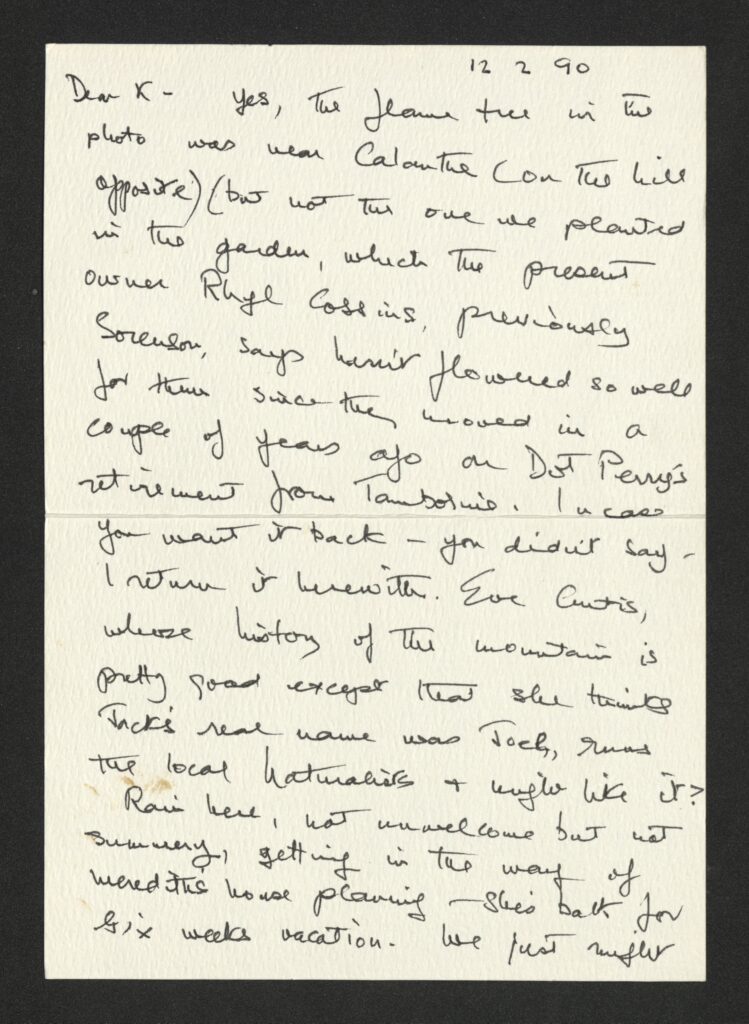 12 2 90
Dear K - Yes, the flame tree in the
photo was near Calanthe (on the hill
opposite) (but not the one we planted
in the garden, which the present
owner Rhyl Cossins, previously
Sorenson, says hasn't flowered so well
for them since they moved in a
couple of years ago on Dot Perry's
retirement from Tamborine. In case
you want it back - you didn't say -
I return it herewith. Eve Curtis,
whose history of the mountain is
pretty good except that she thinks
Jack's real name was Jock, runs
the local Naturalists + might like it?
Rain here, not unwelcome but not
summery, getting in the way of
Meredith's house planning - she's back for
six weeks vacation. We just might